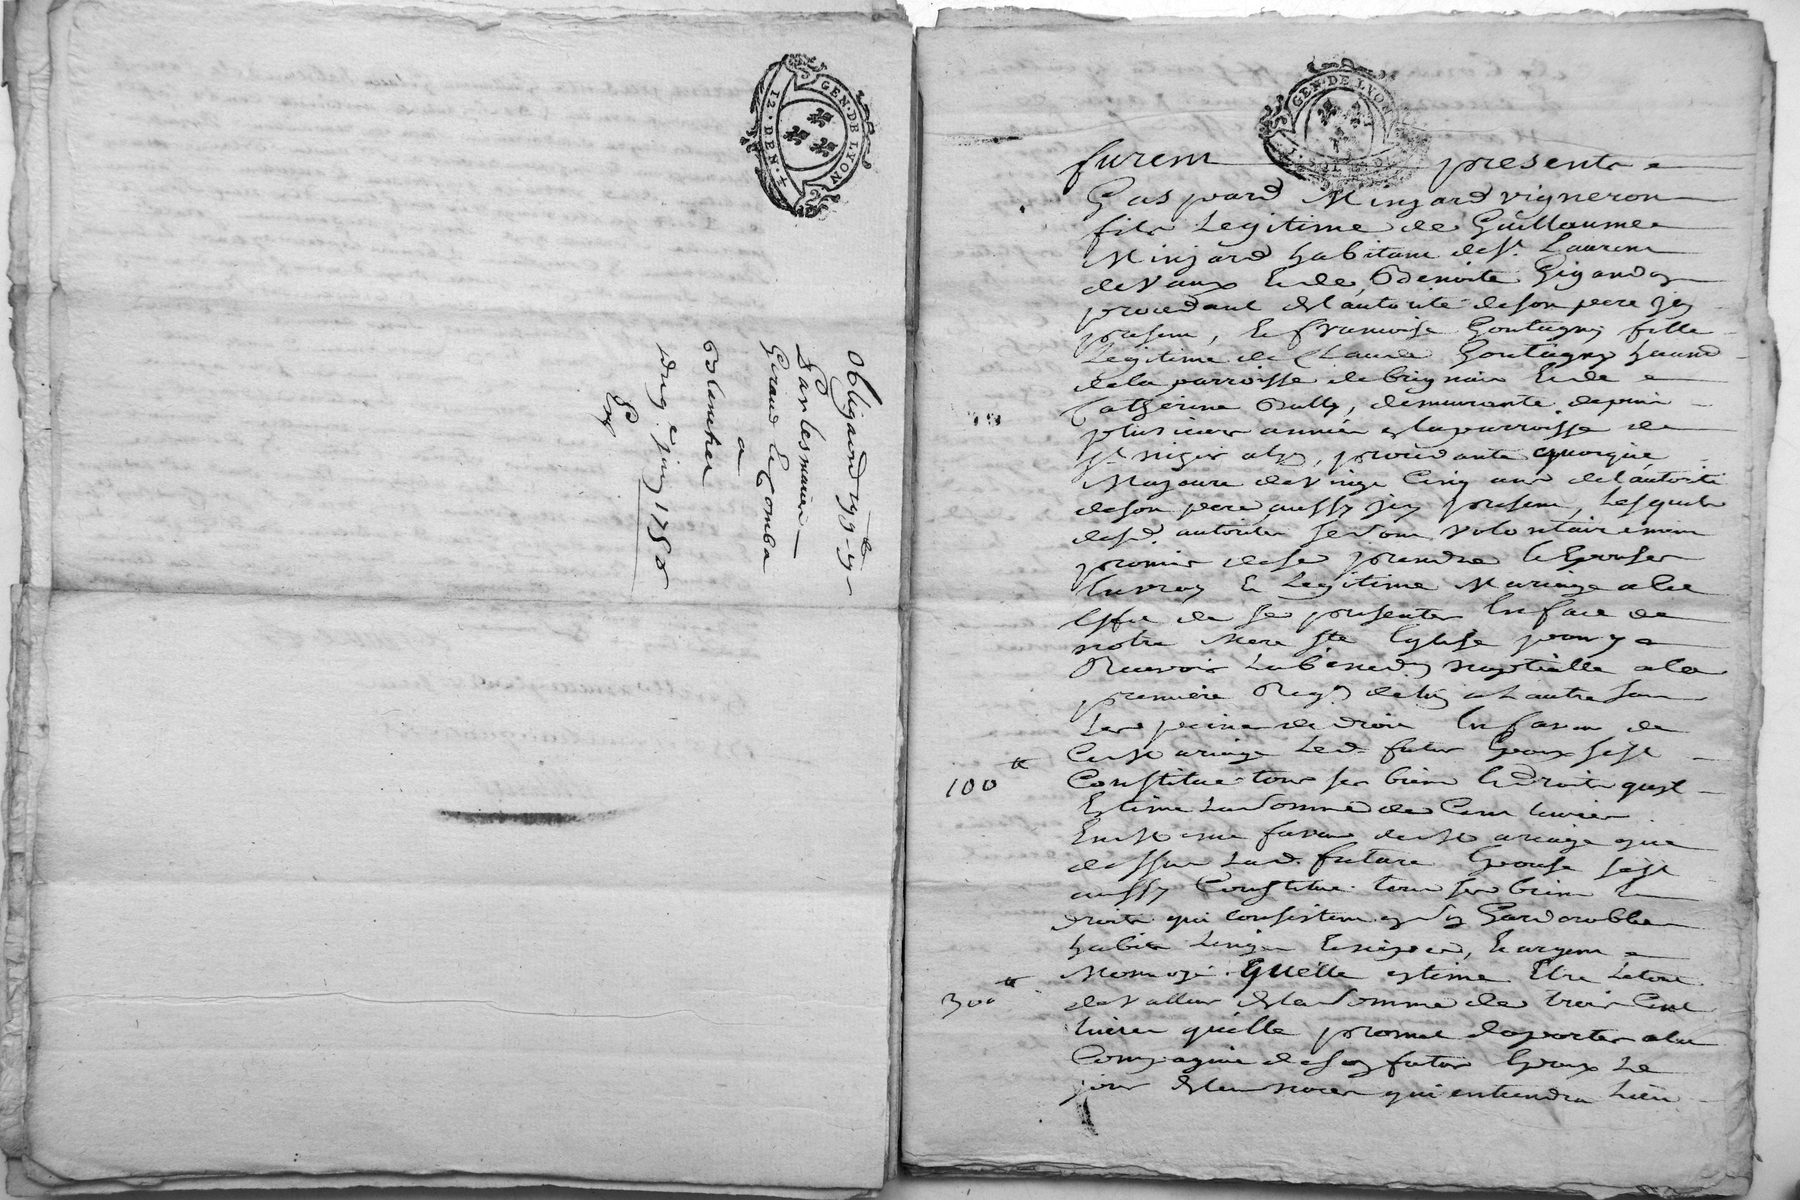 GEN · DE LYON
12 · DEN · 4
2
Obligaõn
Par les mariés
Giraud et Comba
a
Blancher
Du 9e juin 1750
Exp
GEN · DE LYON
furent presents
Gaspard Minjard vigneron
fils Legitime de Guillaume
Minjard habitant de St. Laurent
de Vaux et de Benoite
procedant de l'autorité de son pere icy
present, et françoise Goutagny fille
Legitime de Claude Goutagny
de la parroisse de brignais et de
Catherine Bully, demeurante depuis
plusieurs années en la parroisse de
St. nizier, procedante quoique
Majeure de Vingt Cinq ans de l'autorité
de son pere aussy icy present, Lesquels
desd. autorités se sont volontairement
promis de se prendre et Epouser
En vray et Legitime Mariage a cet
Effet de se presenter En face de
notre Mere ste Eglise pour y
Recevoir La bened.on nuptialle a la
premiere Req.on de l'un a L'autre sous
Les peines de droit En faveur de
Ce Mariage Led. futur Epoux s'est
100 ₶ Constitué tous ses biens et Droits quil
Estime La Somme de Cent livres
Et En même faveur de Mariage que
dessus Lad. future Epouse s'est
aussy Constitué tous ses biens et
droits qui consistent en Garderobbe
habits Linges, Et argent
Monoyé. Qu'elle estime Etre
300 ₶ de Valleur de la Somme de trois Cent
livres qu'elle promet d'aporter a la
Compagnie de son futur Epoux Le
jour de leur noces qui entiendra Lieu